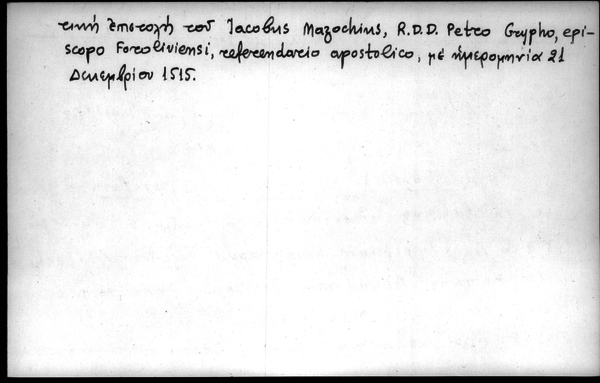 τική ἐπιστολή τοῦ Jacobus Mazochius, R.D.D. Petro Grypho, epi-
scopo Foroliviensi, referendario apostolico, μέ ἡμερομηνία 21
Δεκεμβρίου 1515.